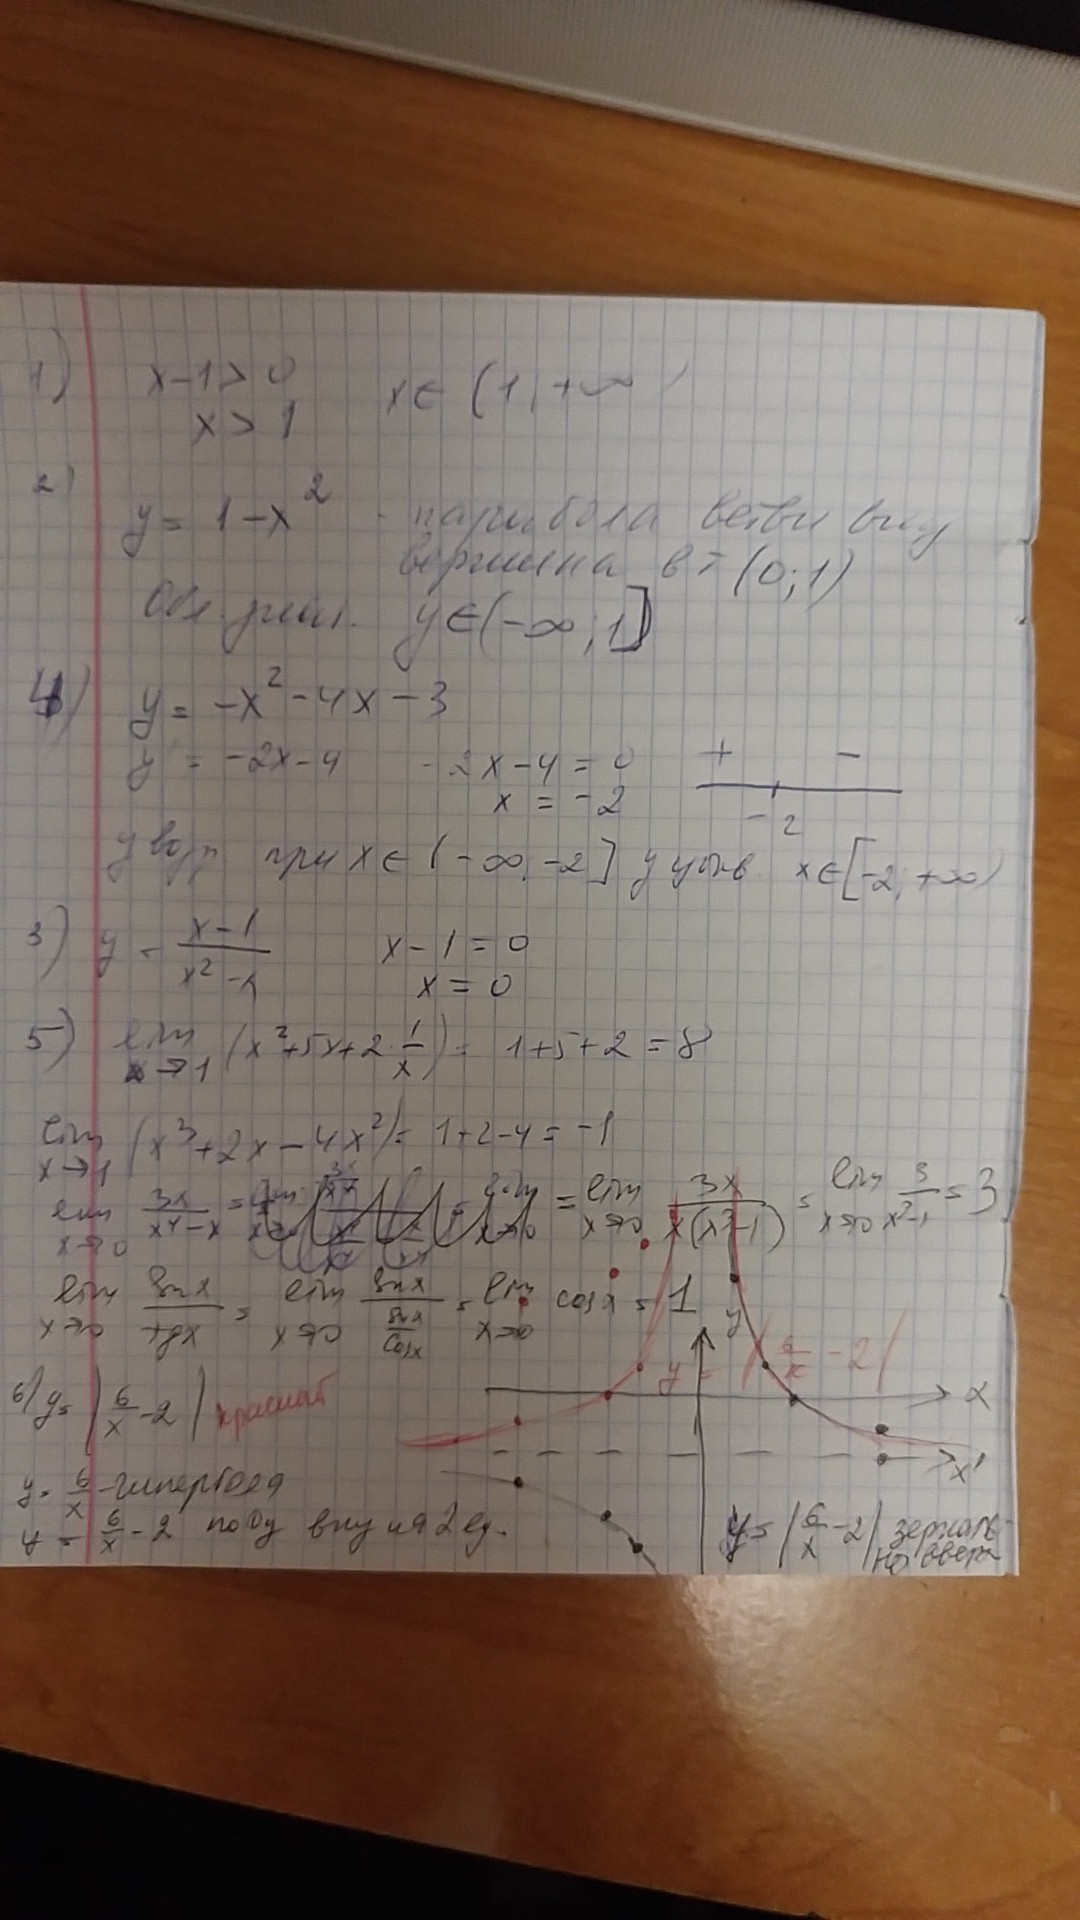 1) x-1>0 x∈(1,+∞)
x>1
2)
y = 1-x² - парабола ветви вниз
вершина в т (0;1)
Обл. знач. y∈(-∞;1]
4) y = -x²-4x-3
y' = -2x-4 -2x-4=0 + -
x = -2 -2
y возр при x∈(-∞,-2] y убыв. x∈[-2;+∞)
3) y = x-1/x²-x x-1=0
x=0
5) lim x→1 (x²+5x+2·1/x) = 1+5+2=8
lim x→1 (x³+2x-4x²) = 1+2-4=-1
lim x→0 3x/x⁴-x = = lim x→0 3x/x(x³-1) = lim x→0 3/x³-1 = 3
lim x→0 sin x/tg x = lim x→0 sin x/sin x/cos x = lim x→0 cos x = 1
y
y = |6/x-2|
6) y= |6/x-2| красный
x
x'
y= 6/x - гипербола
y = 6/x-2 вниз на 2 ед.
y=|6/x-2| зеркаль-
но вверх